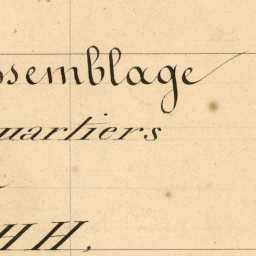 ssemblage
uartiers
HH,